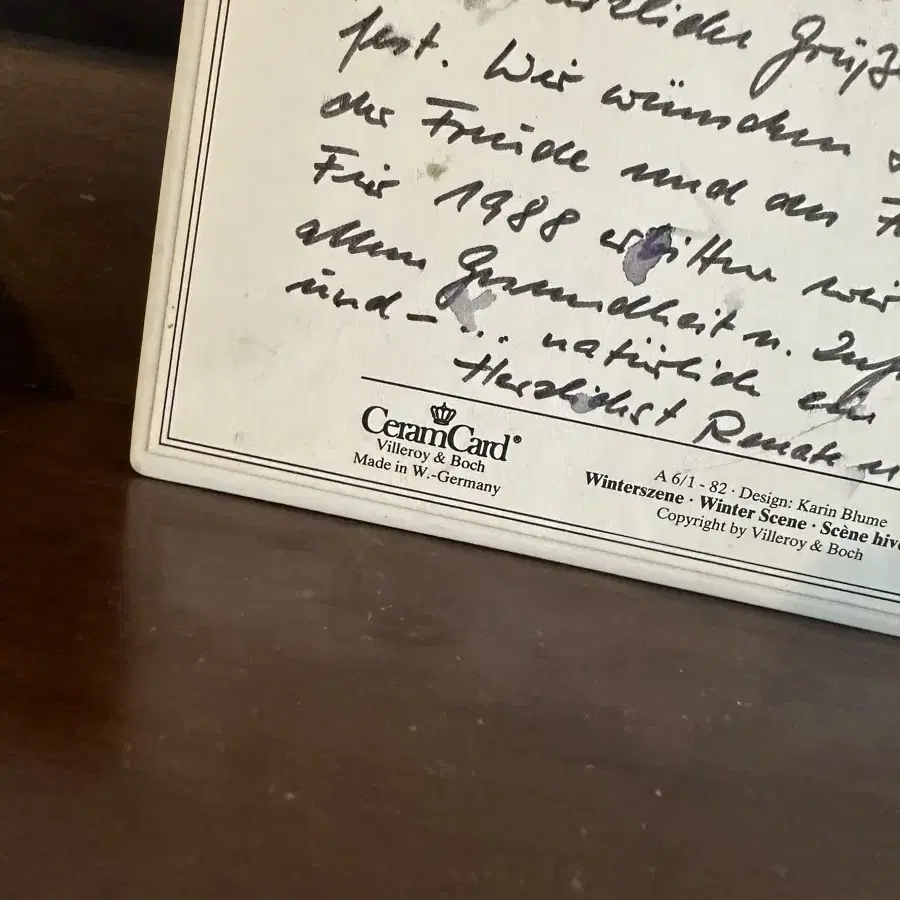 herzliche Grüße
fest. Wir wünschen
der Freude und den
Für 1988 erbitten wir
allem Gesundheit u.
und - ... natürlich ein
Herzlichst Renate
CeramCard®
Villeroy & Boch
Made in W.-Germany
A 6/1 - 82 · Design: Karin Blume
Winterszene · Winter Scene · Scène hive
Copyright by Villeroy & Boch